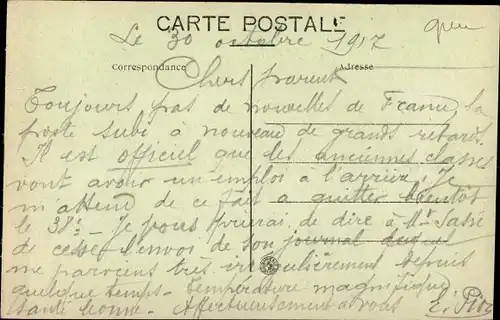 CARTE POSTALE
Le 30 octobre 1917
Correspondance Adresse
Chers parents
Toujours pas de nouvelles de France, la
poste subi à nouveau de grands retards.
Il est officiel que les anciennes classes
vont avoir un emploi à l'arrière. Je
m'attend de ce fait à quitter bientôt
le 38e. Je vous prierai de dire à Mr
de cesser l'envoi de son journal lequel
me parvient très irrégulièrement depuis
quelque temps. température magnifique
santé bonne. Affectueusement à vous E.